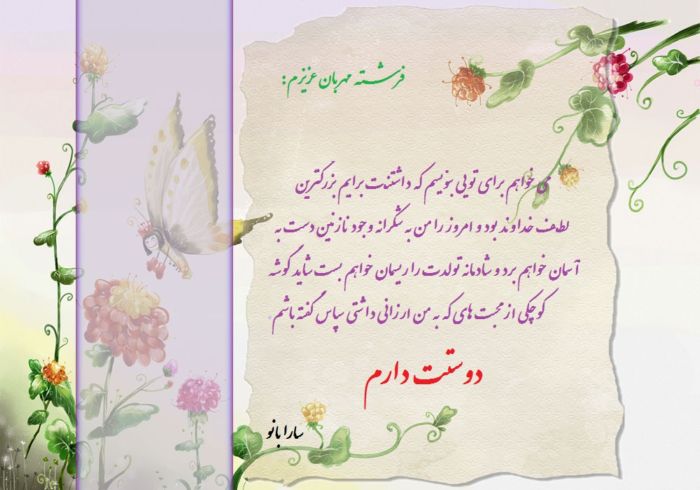 فرشته مهربان عزیزم:
می خواهم برای تویی بنویسم که داشتنت برایم بزرگترین
لطف خداوند بود و امروز را من به شکرانه وجود نازنین دست به
آسمان خواهم برد و شادمانه تولدت را ریسمان خواهم بست شاید گوشه
کوچکی از محبت های که به من ارزانی داشتی سپاس گفته باشم.
دوستت دارم
سارا بانو